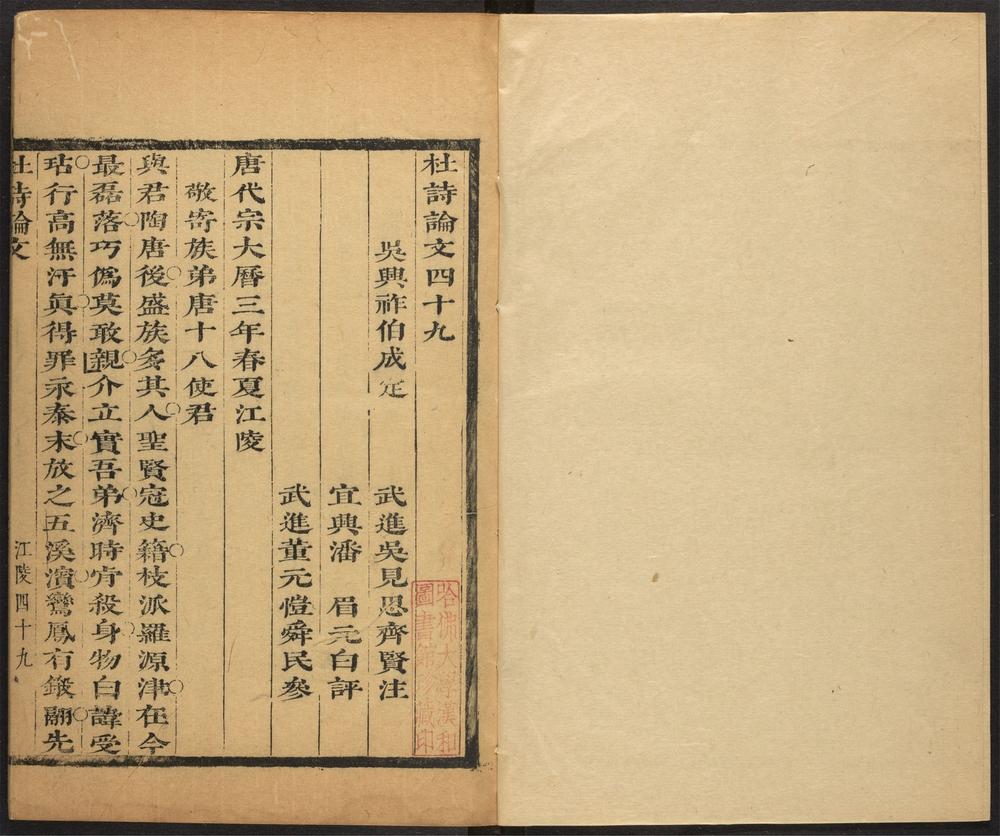 杜詩論文四十九
吳興祚伯成定 武進吳見思齊賢注
宜興潘 眉元白評
武進董元愷舜民參
唐代宗大曆三年春夏江陵
敬寄族弟唐十八使君
與君陶唐後盛族多其人聖賢冠史籍枝派羅源津在今
最磊落巧僞莫敢親介立實吾弟濟時肯殺身物白諱受
玷行高無汙眞得罪永泰末放之五溪濱鸞鳳有鎩翮先
杜詩論文 江陵四十九
哈佛大學漢和
圖書館珍藏印